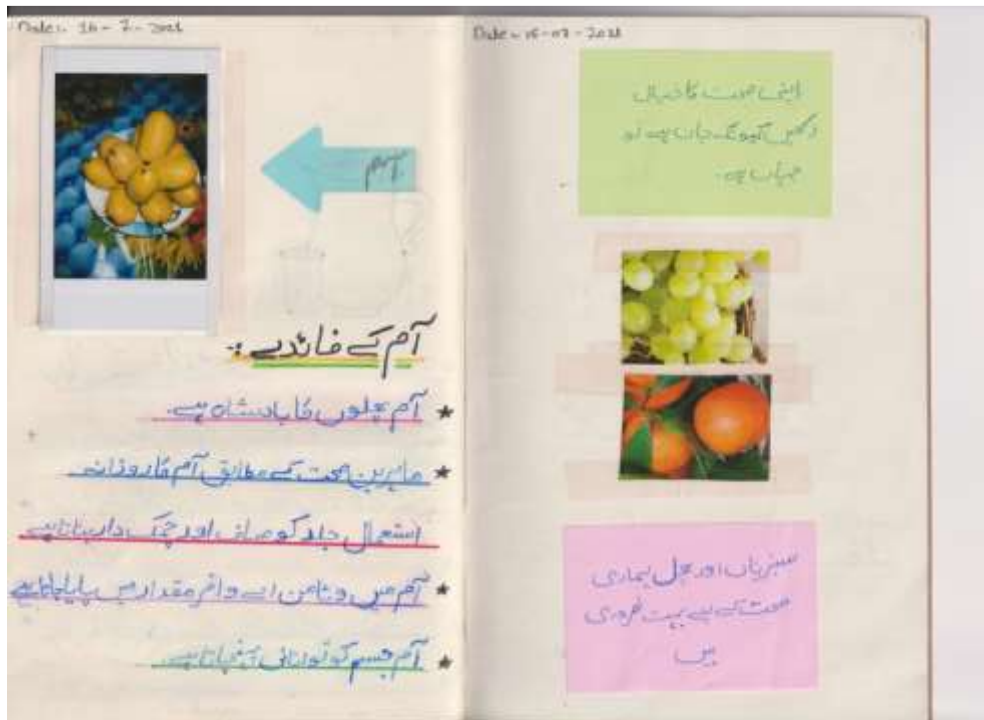 Date:- 16 - 7 - 2021
آم کے فائدے :-
★ آم پھلوں کا بادشاہ ہے۔
★ ماہرین صحت کے مطابق آم کا روزانہ
استعمال جلد کو صاف اور چمک دار بناتا ہے
★ آم میں وٹامن اے وافر مقدار میں پایا جاتا ہے
★ آم جسم کو توانائی پہنچاتا ہے۔
Date:- 16-07-2021
اپنی صحت کا خیال
رکھیں کیونکہ جان ہے تو
جہاں ہے۔
سبزیاں اور پھل ہماری
صحت کے لیے بہت ضروری
ہیں